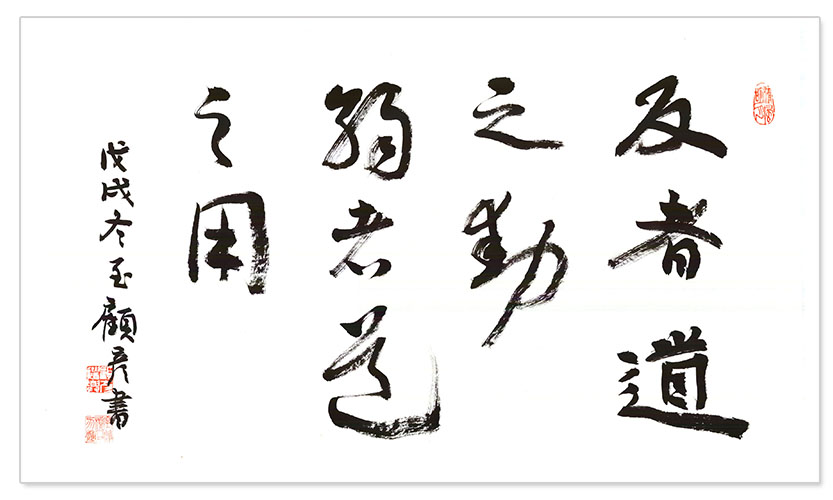 反者道
之動
弱者道
之用
戊戌冬至顧彦書